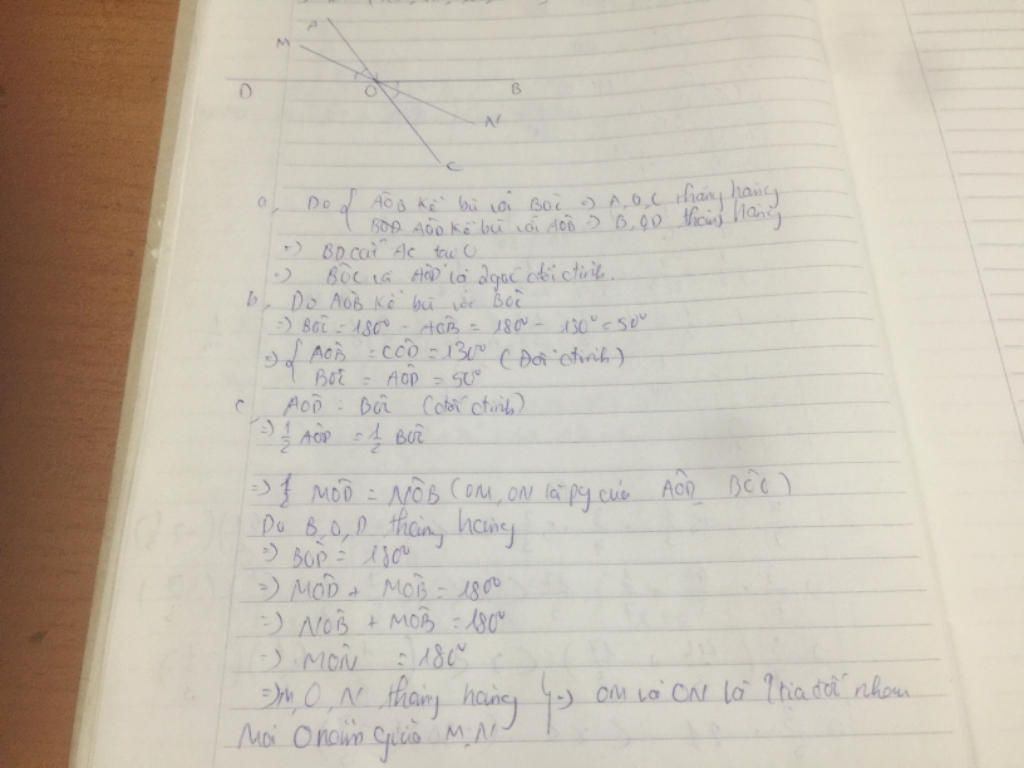 A
M
D
O
B
N
C
a, Do { AÔB kề bù với BÔC => A, O, C thẳng hàng
AÔD kề bù với AÔB => B, O, D thẳng hàng
=> BD cắt AC tại O
=> BÔC và AÔD là 2 góc đối đỉnh.
b, Do AÔB kề bù với BÔC
=> BÔC = 180° - AÔB = 180° - 130° = 50°
=> { AÔB = CÔD = 130° (Đối đỉnh)
BÔC = AÔD = 50°
c, AÔD = BÔC (đối đỉnh)
=> 1/2 AÔD = 1/2 BÔC
=> MÔD = NÔB (OM, ON là pg của AÔD BÔC)
Do B, O, D thẳng hàng
=> BÔD = 180°
=> MÔD + MÔB = 180°
=> NÔB + MÔB = 180°
=> MÔN = 180°
=> M, O, N thẳng hàng } => OM và ON là 2 tia đối nhau
Mà O nằm giữa M, N